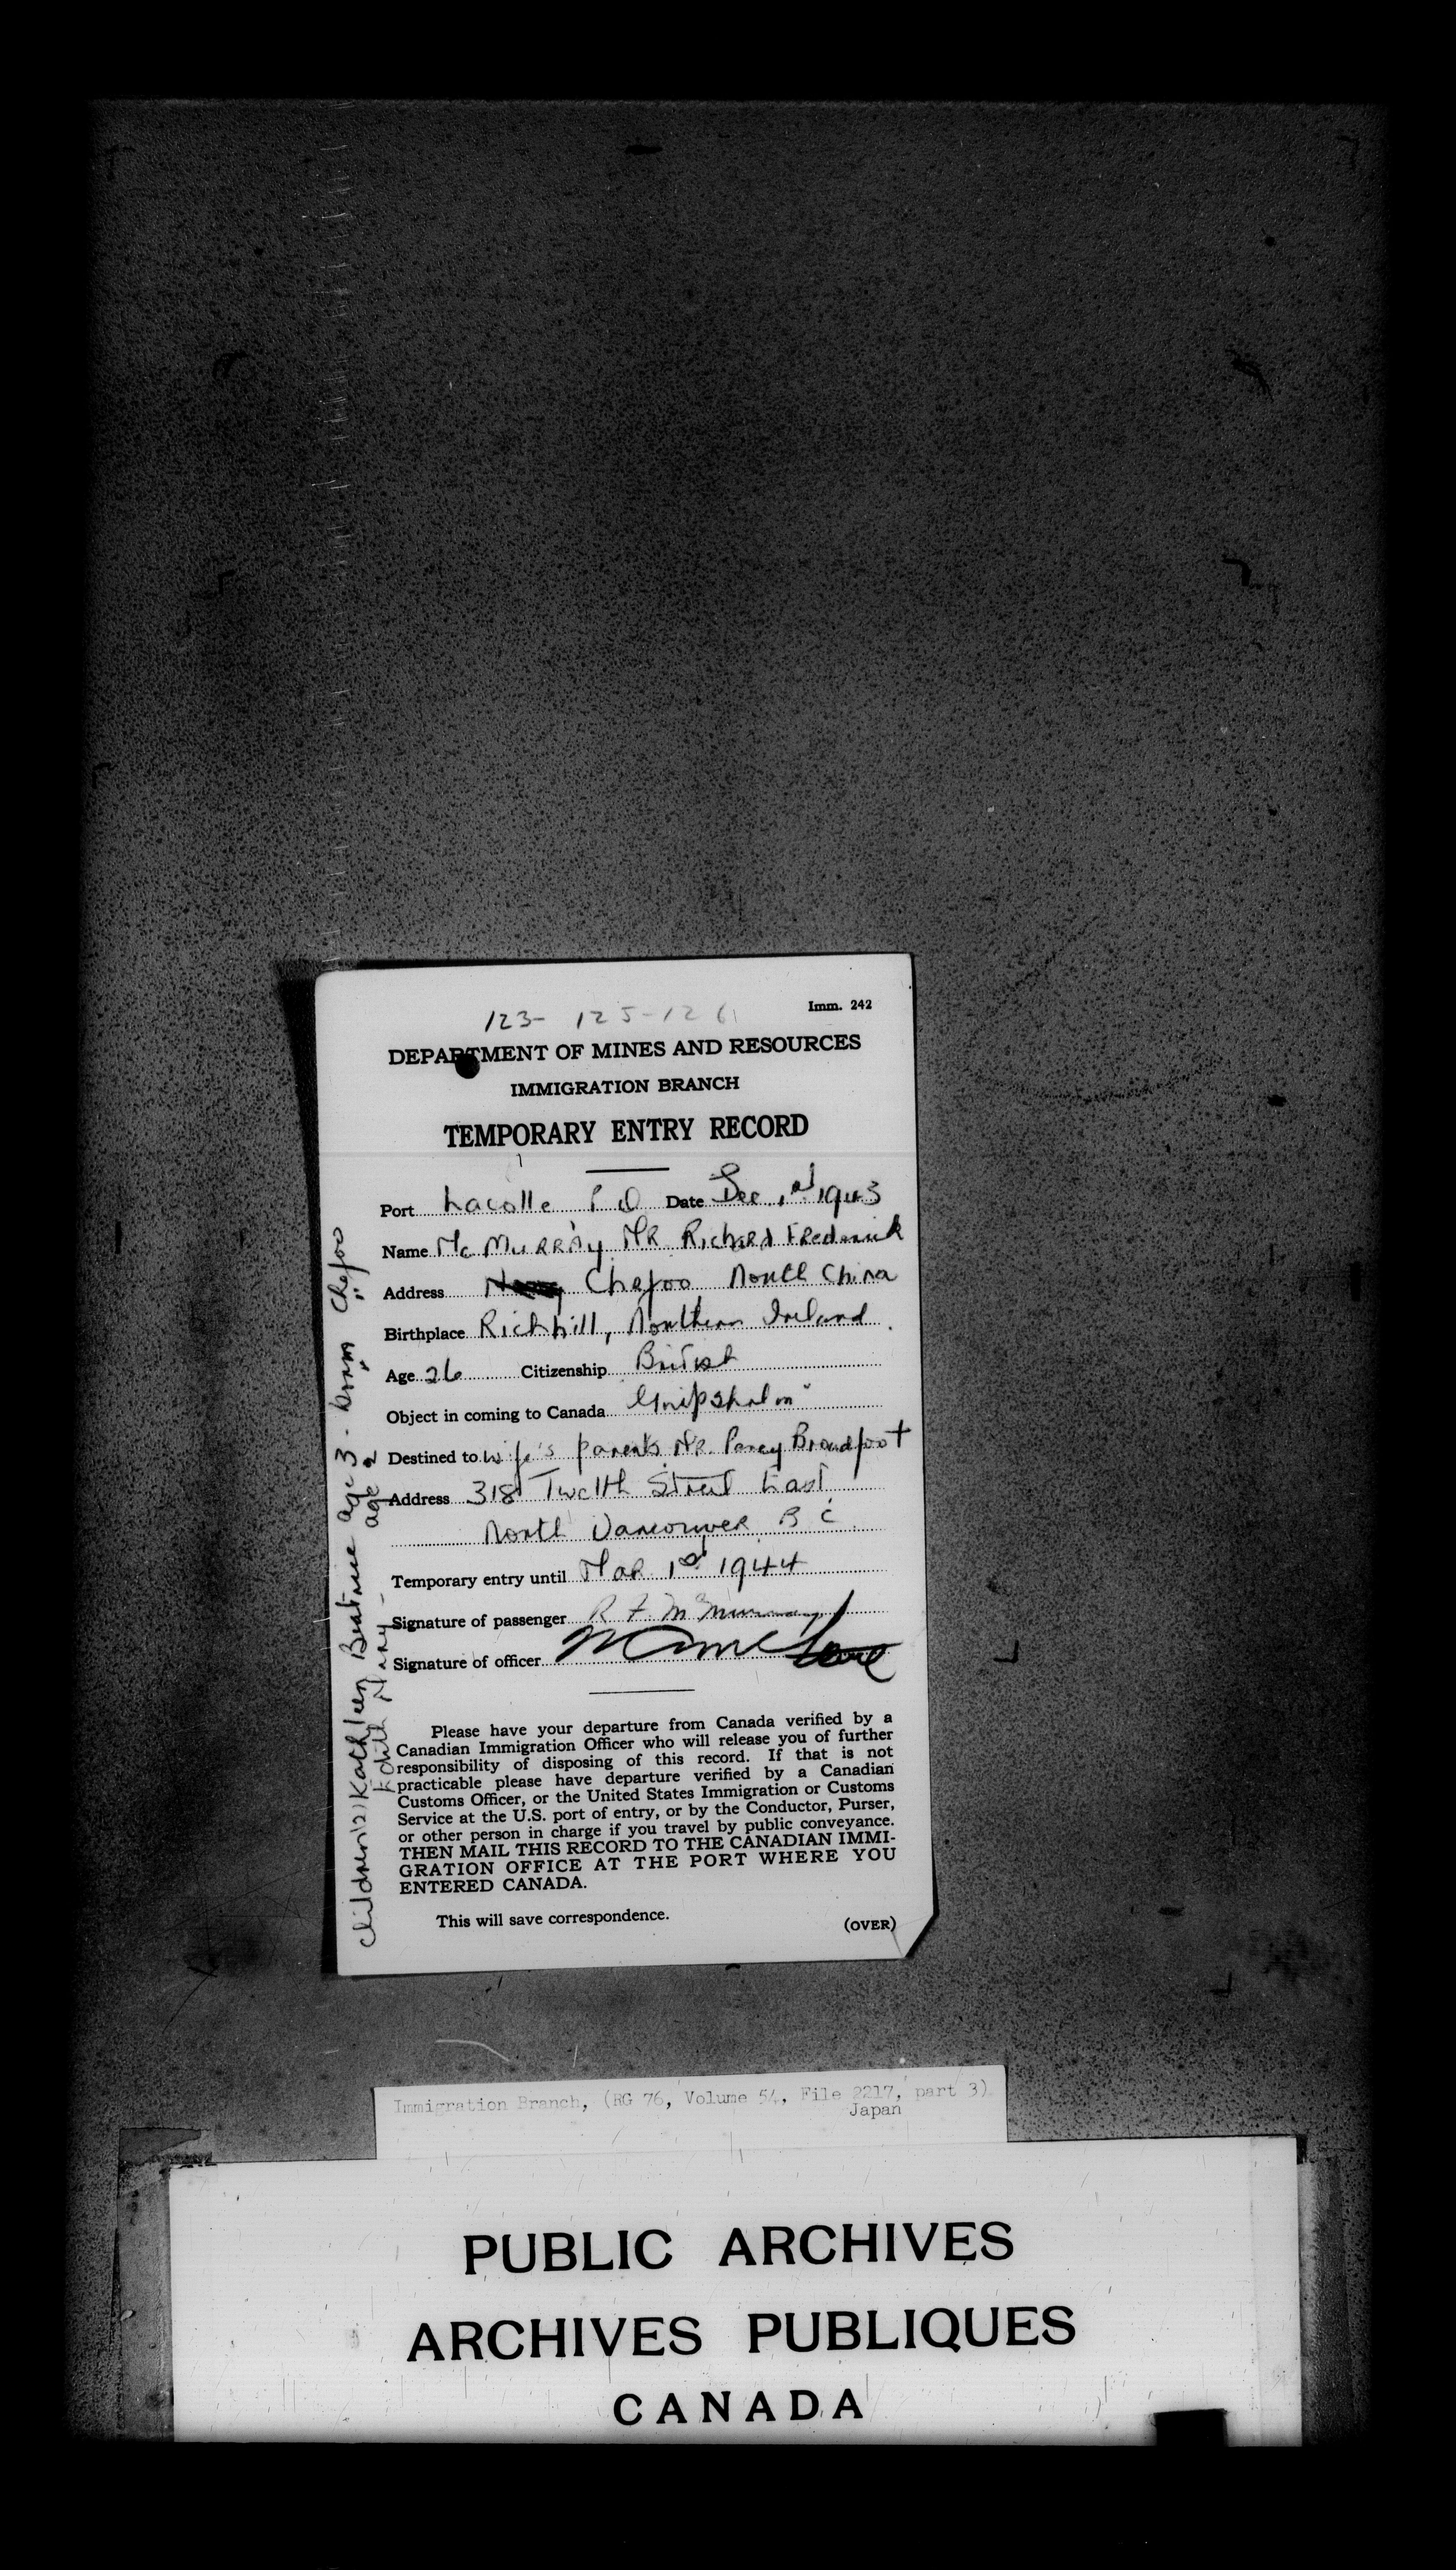 123- 125-126
Imm. 242
DEPARTMENT OF MINES AND RESOURCES
IMMIGRATION BRANCH
TEMPORARY ENTRY RECORD
Port Lacolle P Q Date Dec 1st 1943
Name Mc Murray MR Richard Frederick
Address Chefoo North China
Birthplace Richhill, Northern Ireland.
Age 26 Citizenship British
Object in coming to Canada Gripsholm"
Destined to wife's parents MR. Percy Broadfoot
Address 318 Twelth Street East
North Vancouver B C.
Temporary entry until Mar 1st 1944
Signature of passenger R F. McMurray
Signature of officer
Please have your departure from Canada verified by a
Canadian Immigration Officer who will release you of further
responsibility of disposing of this record. If that is not
practicable please have departure verified by a Canadian
Customs Officer, or the United States Immigration or Customs
Service at the U.S. port of entry, or by the Conductor, Purser,
or other person in charge if you travel by public conveyance.
THEN MAIL THIS RECORD TO THE CANADIAN IMMI-
GRATION OFFICE AT THE PORT WHERE YOU
ENTERED CANADA.
This will save correspondence.
(OVER)
Children (2) Kathleen Beatrice age 3 - born Chefoo
Edith Mary - age 2 " "
Immigration Branch, (RG 76, Volume 54, File 2217, part 3)
Japan
PUBLIC ARCHIVES
ARCHIVES PUBLIQUES
CANADA